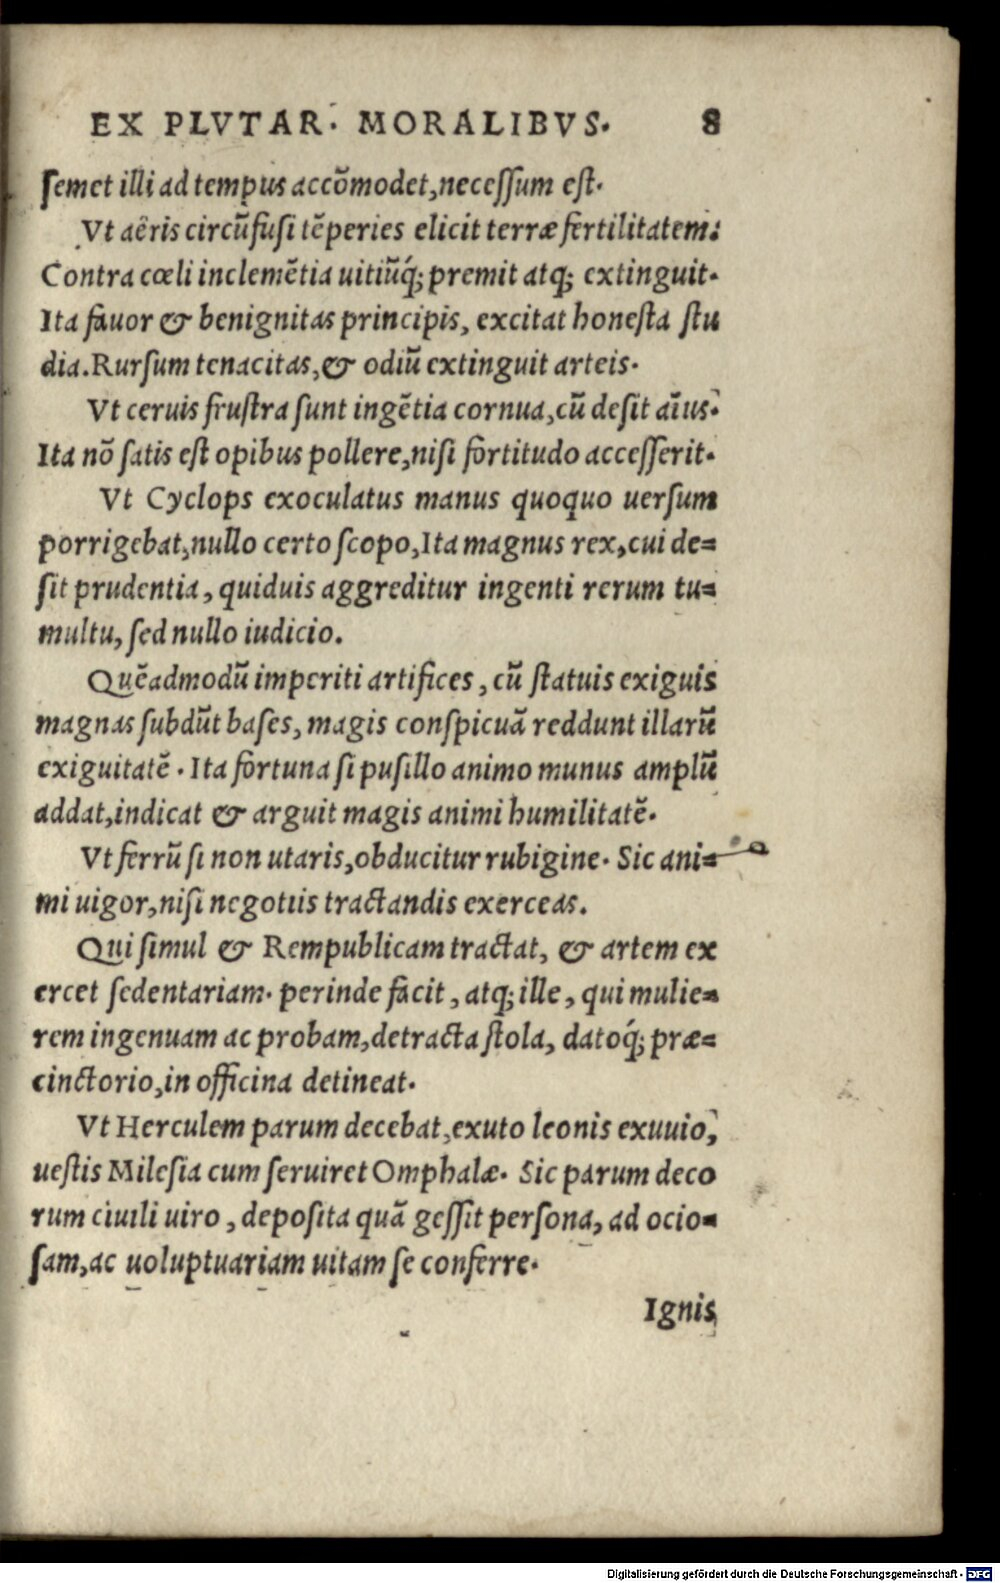 EX PLVTAR. MORALIBVS. 8
semet illi ad tempus accōmodet, necessum est.
Vt aëris circūfusi tēperies elicit terræ fertilitatem:
Contra cœli inclemētia uitiūq́; premit atq; extinguit.
Ita fauor & benignitas principis, excitat honesta stu
dia. Rursum tenacitas, & odiū extinguit arteis.
Vt ceruis frustra sunt ingētia cornua, cū desit aīus.
Ita nō satis est opibus pollere, nisi fortitudo accesserit.
Vt Cyclops exoculatus manus quoquo uersum
porrigebat, nullo certo scopo, Ita magnus rex, cui de=
sit prudentia, quiduis aggreditur ingenti rerum tu=
multu, sed nullo iudicio.
Quēadmodū imperiti artifices, cū statuis exiguis
magnas subdūt bases, magis conspicuā reddunt illarū
exiguitatē. Ita fortuna si pusillo animo munus amplū
addat, indicat & arguit magis animi humilitatē.
Vt ferrū si non utaris, obducitur rubigine. Sic ani=
mi uigor, nisi negotiis tractandis exerceas.
Qui simul & Rempublicam tractat, & artem ex
ercet sedentariam. perinde facit, atq; ille, qui mulie=
rem ingenuam ac probam, detracta stola, datoq́; præ=
cinctorio, in officina detineat.
Vt Herculem parum decebat, exuto leonis exuuio,
uestis Milesia cum seruiret Omphalæ. Sic parum deco
rum ciuili uiro, deposita quā gessit persona, ad ocio=
sam, ac uoluptuariam uitam se conferre.
Ignis
Digitalisierung gefördert durch die Deutsche Forschungsgemeinschaft - DFG